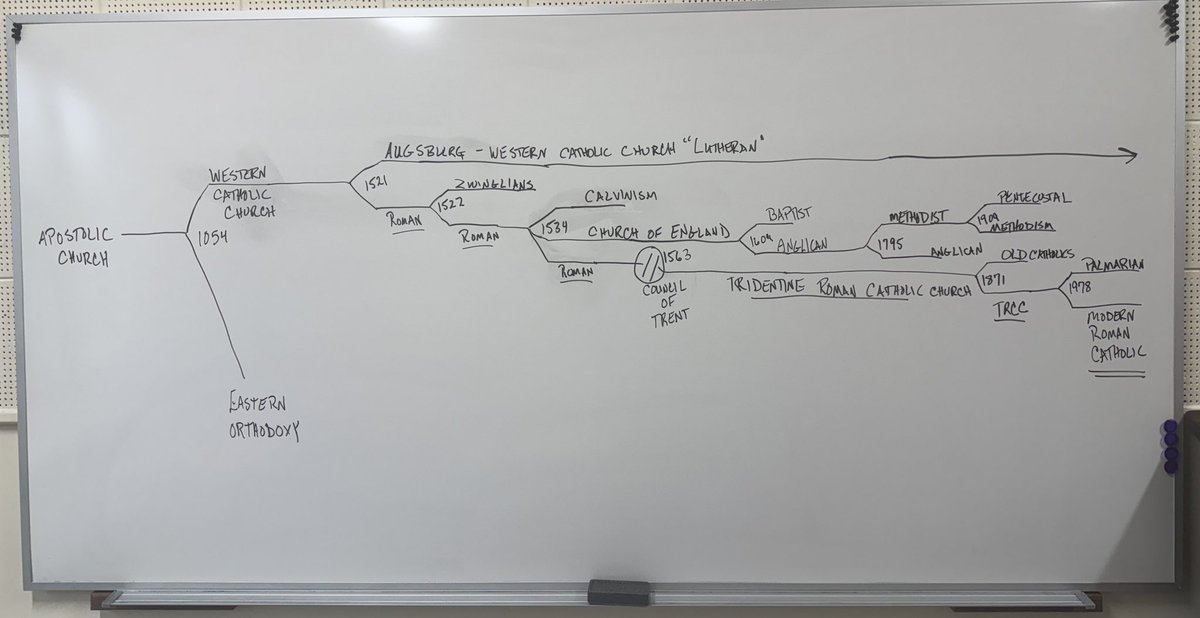 AUGSBURG - WESTERN CATHOLIC CHURCH "LUTHERAN"
WESTERN
CATHOLIC
CHURCH
1521
ZWINGLIANS
1522
ROMAN
ROMAN
CALVINISM
1534
CHURCH OF ENGLAND
ROMAN
BAPTIST
1609
ANGLICAN
METHODIST
1795
ANGLICAN
PENTECOSTAL
1909
METHODISM
APOSTOLIC
CHURCH
1054
1563
COUNCIL
OF
TRENT
TRIDENTINE ROMAN CATHOLIC CHURCH
OLD CATHOLICS
1871
TRCC
PALMARIAN
1978
MODERN
ROMAN
CATHOLIC
EASTERN
ORTHODOXY